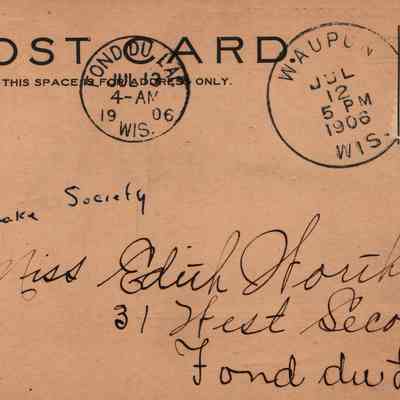 OST CARD
THIS SPACE IS FOR ADDRESS ONLY.
FOND DU LAC
JUL 13
4-AM
1906
WIS.
WAUPUN
JUL
12
5 PM
1906
WIS.
ake Society
Miss Edith
31 West Seco
Fond du L